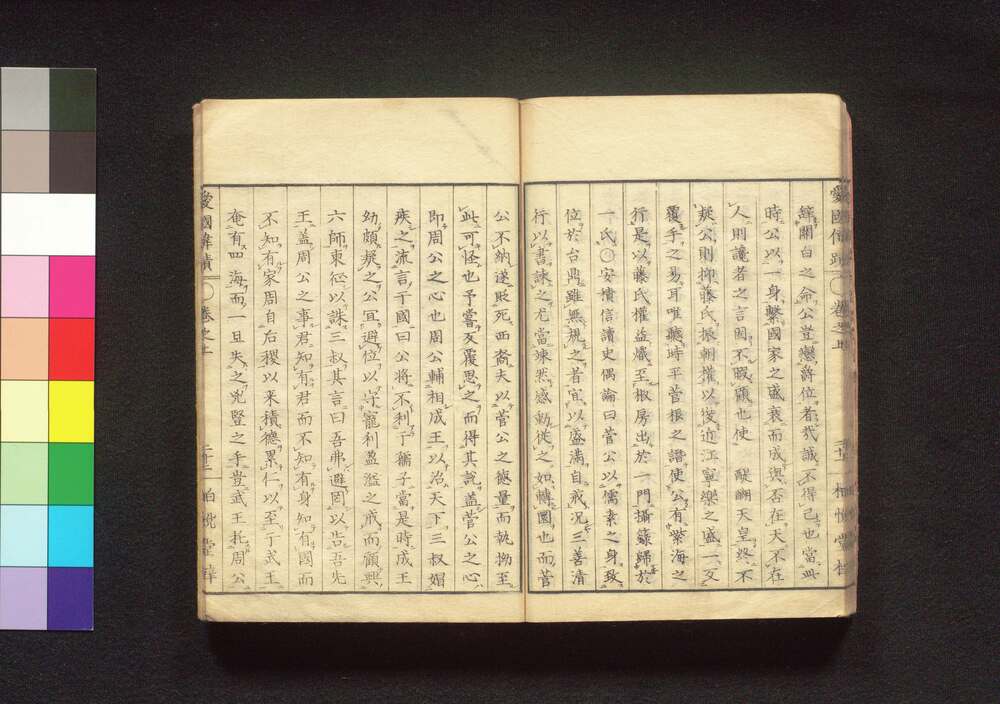 辭關白之命公豈戀爵位者哉誠不得已也當此
時公以一身繫國家之盛衰而成與否在天不在
人則讒者之言固不暇顧也使 醍醐天皇終不
疑公則抑藤氏振朝權以復近江寧樂之盛一反
覆手之易耳唯聽時平菅根之譖使公有紫海之
行是以藤氏權益熾至椒房出於一門攝籙歸於
一氏〇安積信讀史偶論曰菅公以儒素之身致
位於台鼎雖無規之者宜以盛滿自戒況三善清
行以書諫之尤當竦然感動從之如轉圜也而菅
公不納遂貶死西裔夫以菅公之德量而執拗至
此可怪也予嘗反覆思之而得其說蓋菅公之心
即周公之心也周公輔相成王以治天下三叔媢
疾之流言于國曰公將不利于孺子當是時成王
幼頗疑之公宜避位以守寵利盈滥之戒而顧興
六師東征以誅三叔其言曰吾弗避罔以告吾先
王蓋周公之事君知有君而不知有身知有國而
不知有家周自后稷以来積德累仁以至于武王
奄有四海而一旦失之兇豎之手豈武王托周公
愛國偉績 〇卷之上